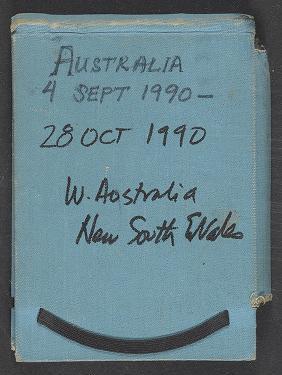 AUSTRALIA
4 SEPT 1990 –
28 OCT 1990
W. Australia
New South Wales